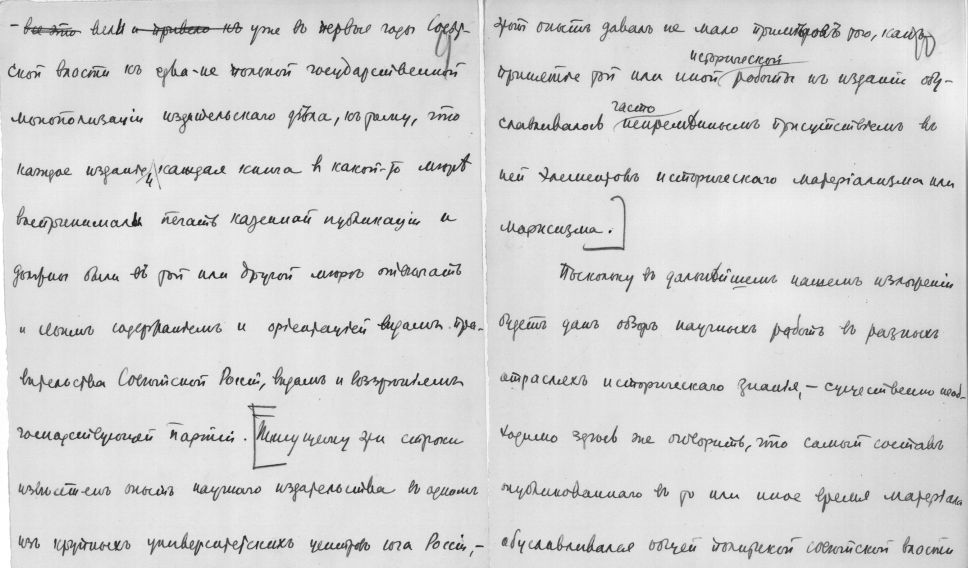 – все это вели и привело къ уже въ первые годы Совѣт-
ской власти къ едва-не полной государственной
монополизаціи издательскаго дѣла, къ тому, что
каждое изданіе, каждая книга в какой-то мѣрѣ
воспринимали печать казенной публикаціи и
должны были въ той или другой мѣрѣ отвѣчать
и своимъ содержаніемъ и оріентаціей видамъ пра-
вительства Совѣтской Россіи, видамъ и воззрѣніямъ
господствующей партіи. [Пишущему эти строки
извѣстенъ опытъ научнаго издательства въ одномъ
изъ крупныхъ университетскихъ центровъ юга Россіи, –
этотъ опытъ давалъ не мало примѣровъ того, какъ
принятіе той или иной исторической работы къ изданію обу-
славливалось часто непремѣннымъ присутствіемъ въ
ней элементовъ историческаго матеріализма или
марксизма.]
Поскольку въ дальнѣйшемъ нашемъ изложеніи
будетъ данъ обзоръ научныхъ работъ въ разныхъ
отрасляхъ историческаго знанія, – существенно необ-
ходимо здѣсь же оговорить, что самый составъ
опубликованнаго въ то или иное время матеріала
обуславливался общей политикой совѣтской власти